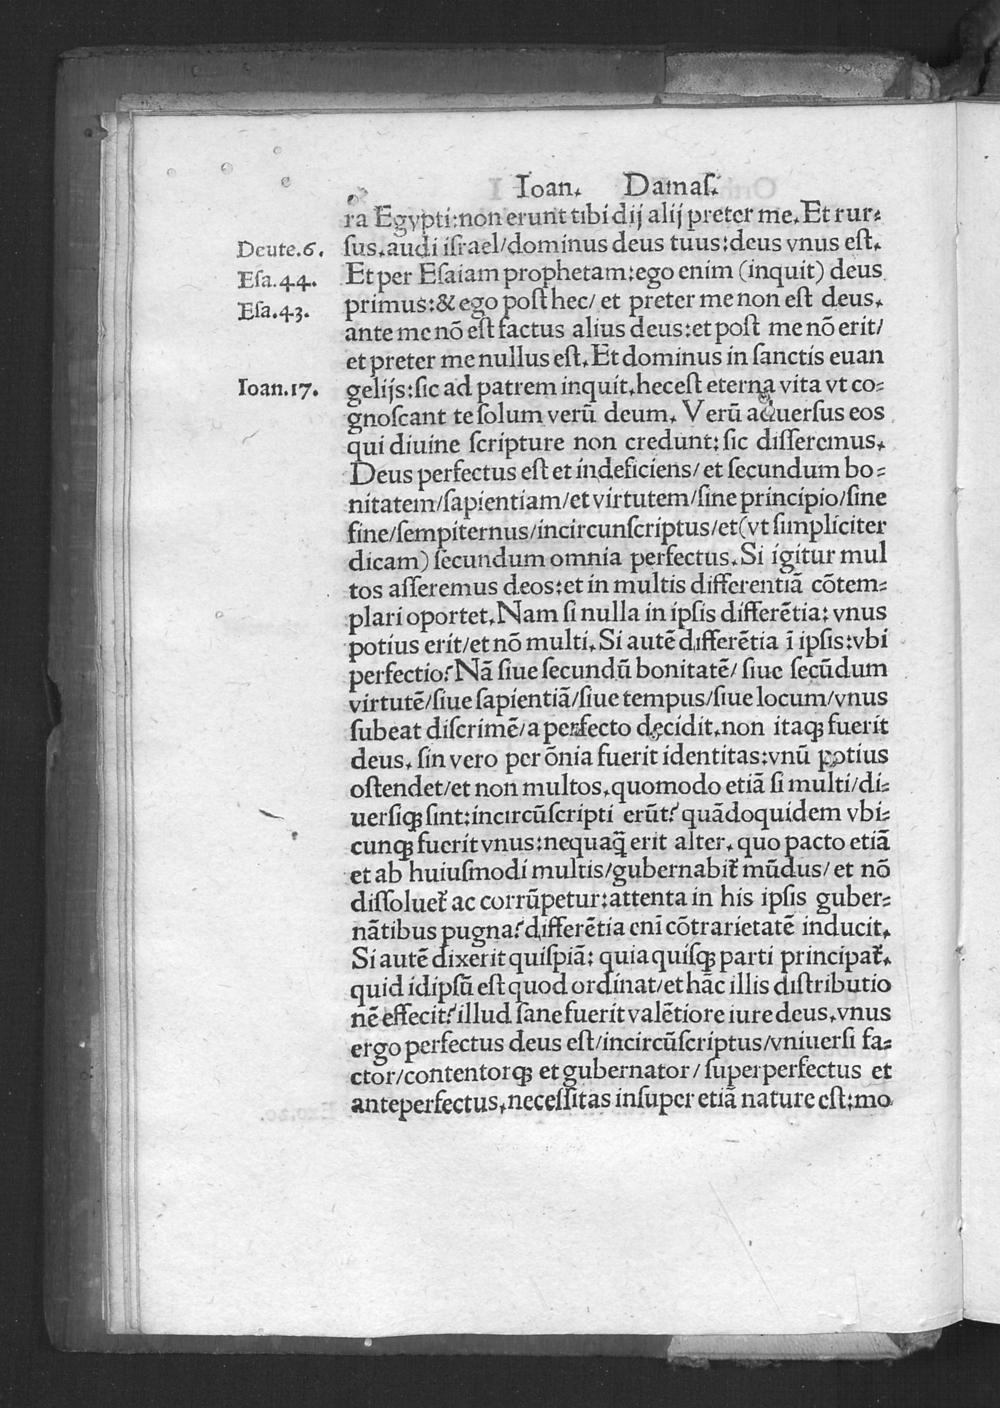 Ioan. Damaſ.
ra Egypti:non erunt tibi dij alij preter me. Et rur-
Deute.6. ſus. audi iſrael/dominus deus tuus:deus vnus eſt.
Eſa.44. Et per Eſaiam prophetam:ego enim (inquit) deus
Eſa.43. primus:& ego poſt hec/ et preter me non est deus.
ante me nõ eſt factus alius deus:et poſt me nõ erit/
et preter me nullus eſt. Et dominus in ſanctis euan
Ioan.17. gelijs:ſic ad patrem inquit. hec eſt eterna vita vt co-
gnoſcant te ſolum verũ deum. Verũ aduerſus eos
qui diuine ſcripture non credunt: ſic differemus.
Deus perfectus eſt et indeficiens/ et ſecundum bo-
nitatem/ſapientiam/et virtutem/ſine principio/ſine
fine/ſempiternus/incircunſcriptus/et(vt ſimpliciter
dicam) ſecundum omnia perfectus. Si igitur mul
tos aſſeremus deos:et in multis differentiã cõtem-
plari oportet. Nam ſi nulla in ipſis differẽtia: vnus
potius erit/et nõ multi. Si autẽ differẽtia ĩ ipſis:vbi
perfectio? Nã ſiue ſecundũ bonitatẽ/ ſiue ſecũdum
virtutẽ/ſiue ſapientiã/ſiue tempus/ſiue locum/vnus
ſubeat diſcrimẽ/a perfecto decidit. non itaqꝫ fuerit
deus. ſin vero per õnia fuerit identitas:vnũ potius
oſtendet/et non multos. quomodo etiã ſi multi/di-
uerſiqꝫ ſint:incircũſcripti erũt? quãdoquidem vbi-
cunqꝫ fuerit vnus:nequaq̃ erit alter. quo pacto etiã
et ab huiuſmodi multis/gubernabit᷑ mũdus/ et nõ
diſſoluet᷑ ac corrũpetur:attenta in his ipſis guber-
nãtibus pugna? differẽtia enĩ cõtrarietatẽ inducit.
Si autẽ dixerit quiſpiã: quia quiſqꝫ parti principat᷑.
quid idipſũ eſt quod ordinat/et hãc illis diſtributio
nẽ effecit? illud ſane fuerit valẽtiore iure deus. vnus
ergo perfectus deus eſt/incircũſcriptus/vniuerſi fa-
ctor/contentorqꝫ et gubernator/ ſuperperfectus et
anteperfectus. neceſſitas inſuper etiã nature eſt: mo